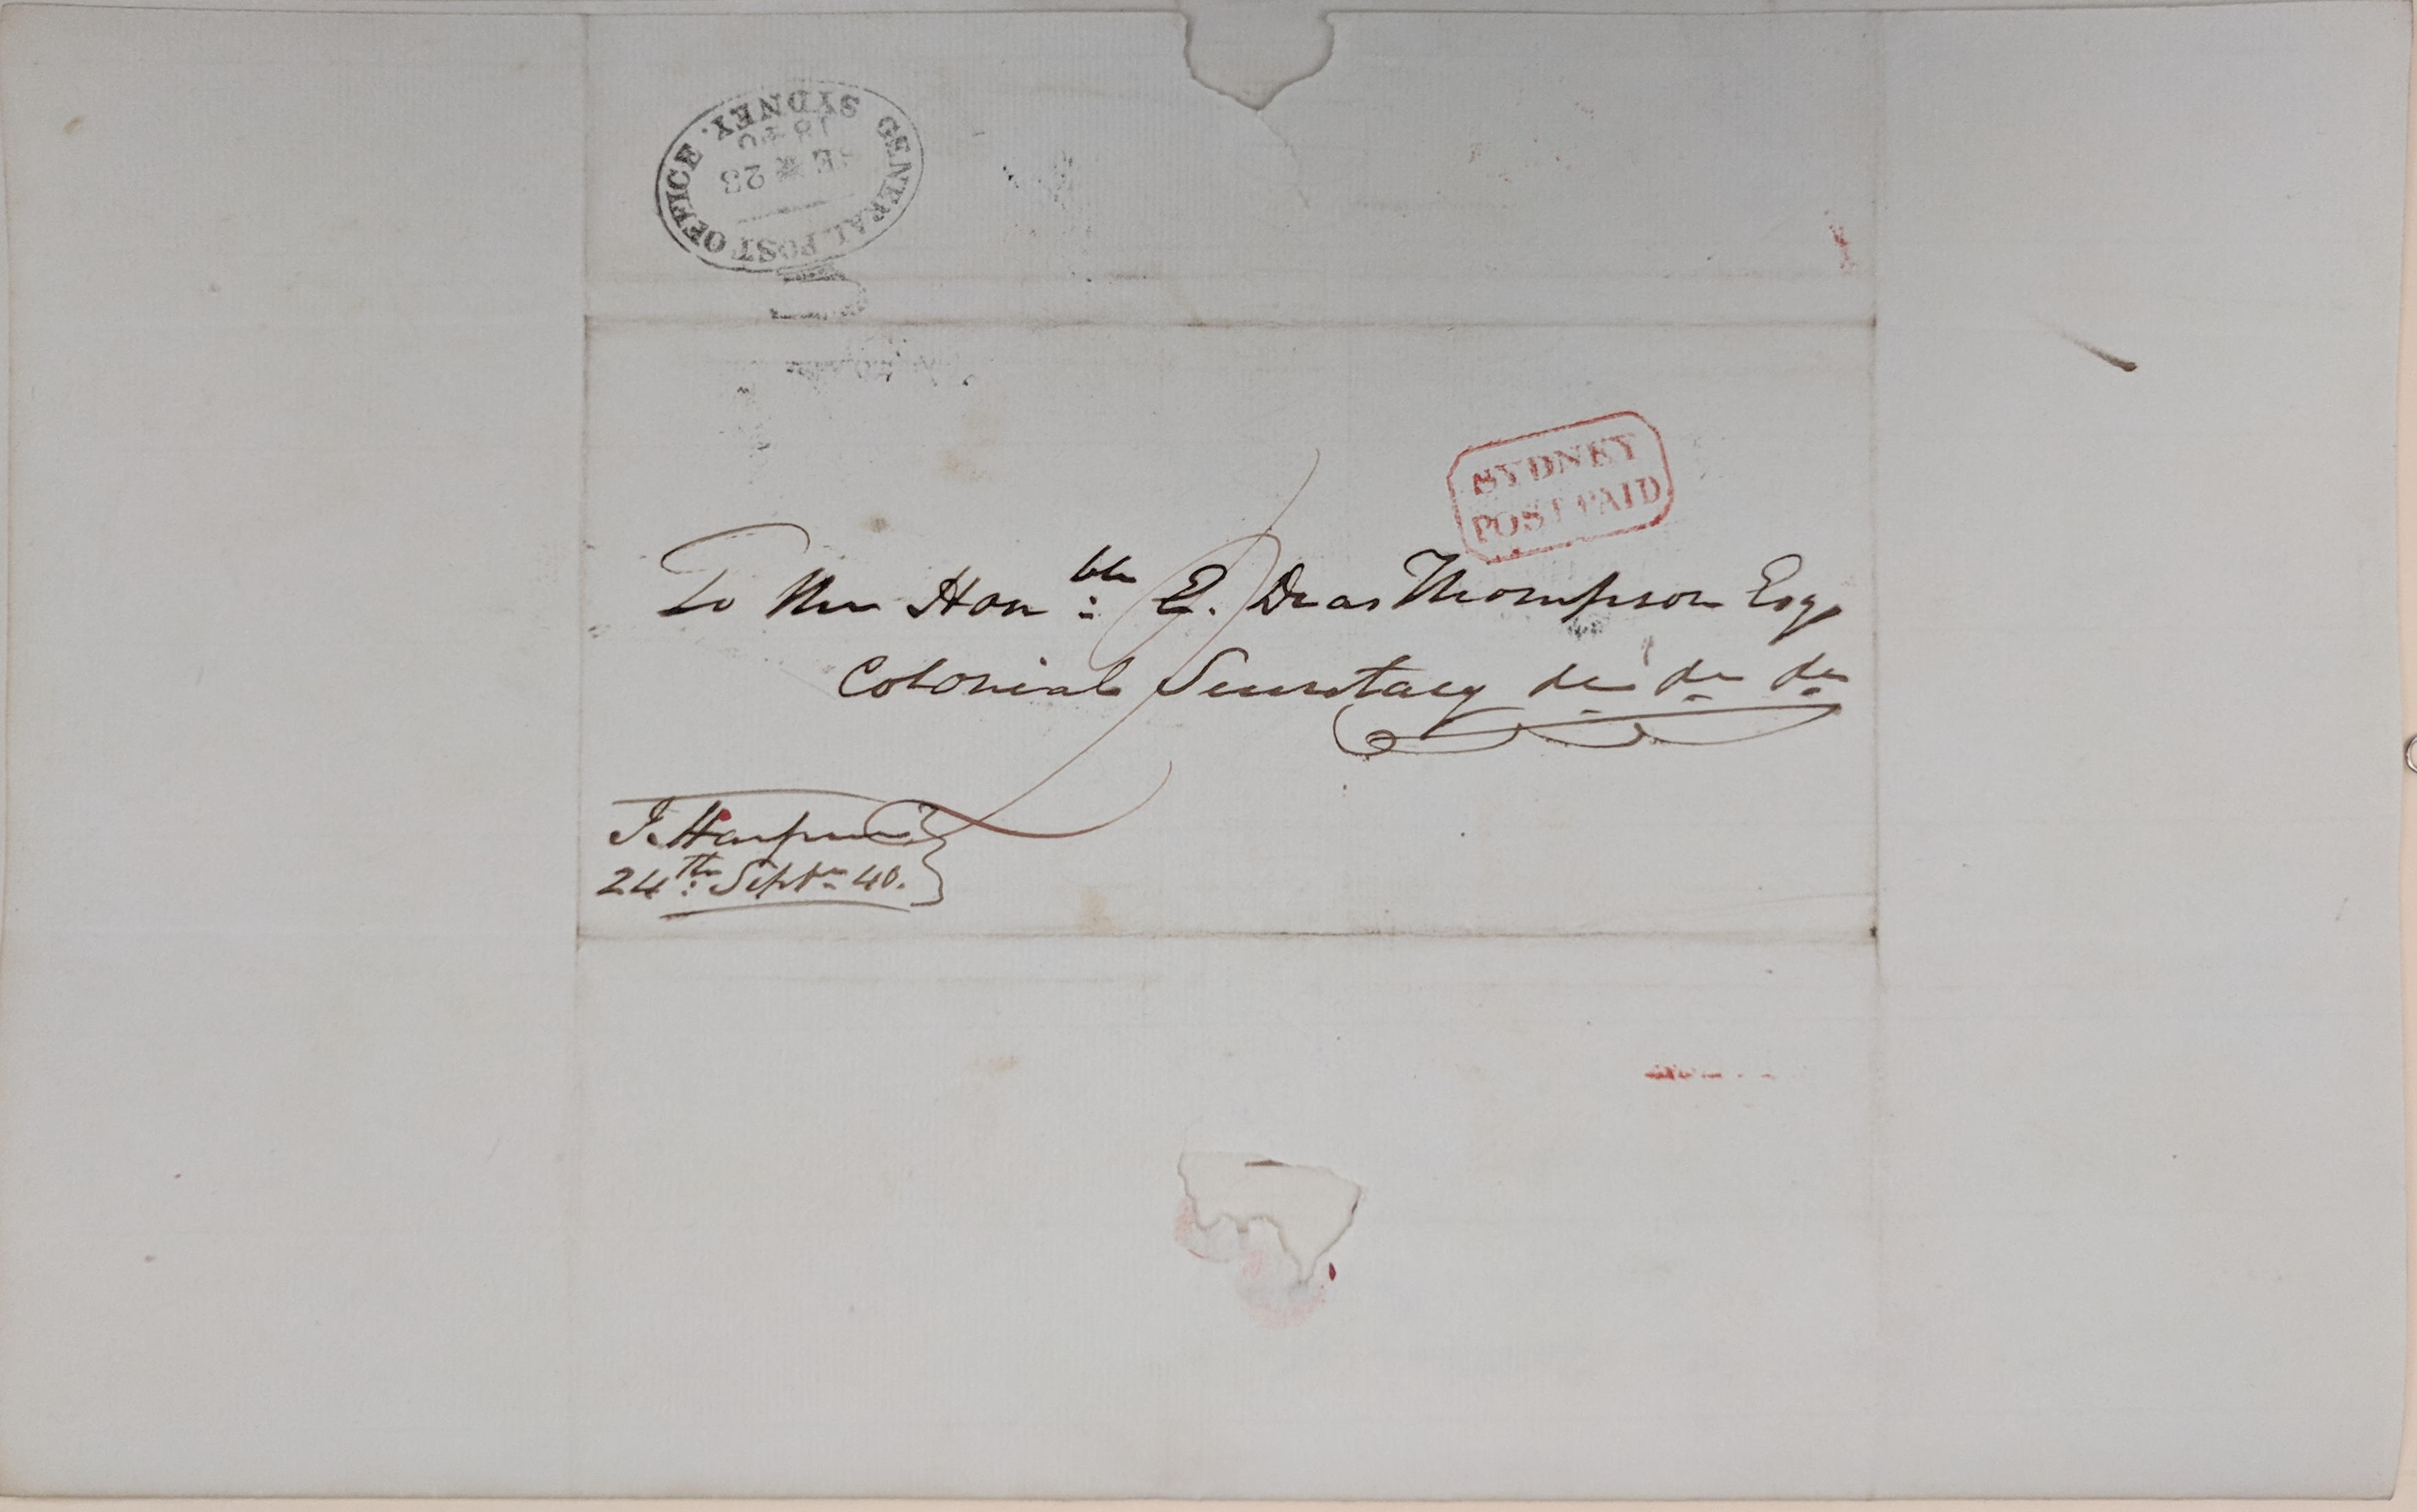 GENERAL POST OFFICE
SE * 23
18 40
SYDNEY.
SYDNEY
POST PAID
To the Hon:ble E. Deas Thompson Esq,
Colonial Secretary &c &c &c
J. Harper
24th: Septr 40.